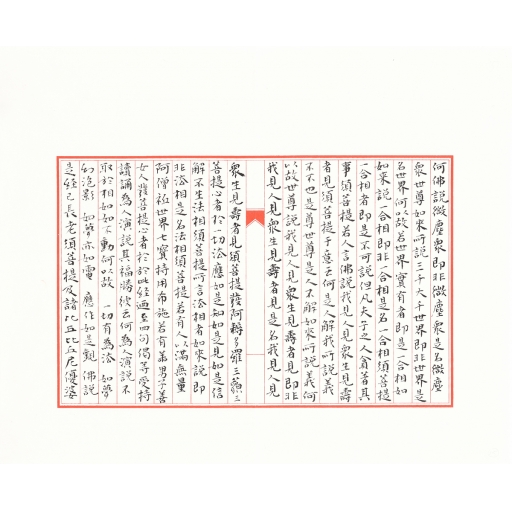 何佛說微塵衆即非微塵衆是名微塵
衆世尊如來所說三千大千世界即非世界是
名世界何以故若世界實有者即是一合相如
如來說一合相即非一合相是名一合相須菩提
一合相者即是不可說但凡夫之人貪著其
事須菩提若人言佛說我見人見衆生見壽
者見須菩提于意云何是人解我所說義
不不也是尊世尊是人不解如來所說義何
以故世尊說我見人見衆生見壽者見即非
我見人見衆生見壽者見是名我見人見
衆生見壽者見須菩提發阿耨多羅三藐三
菩提心者於一切法應如是知如是見如是信
解不生法相須菩提所言法相者如來說即
非法相是名法相須菩提若有人以滿無量
阿僧祇世界七寶持用布施若有善男子善
女人發菩提心者於於此經乃至四句偈等受持
讀誦為人演說其福勝彼云何為人演說不
取於相如如不動何以故 一切有為法 如夢
幻泡影 如夢亦如電 應作如是觀 佛說
是經已長老須菩提及諸比丘比丘尼優婆